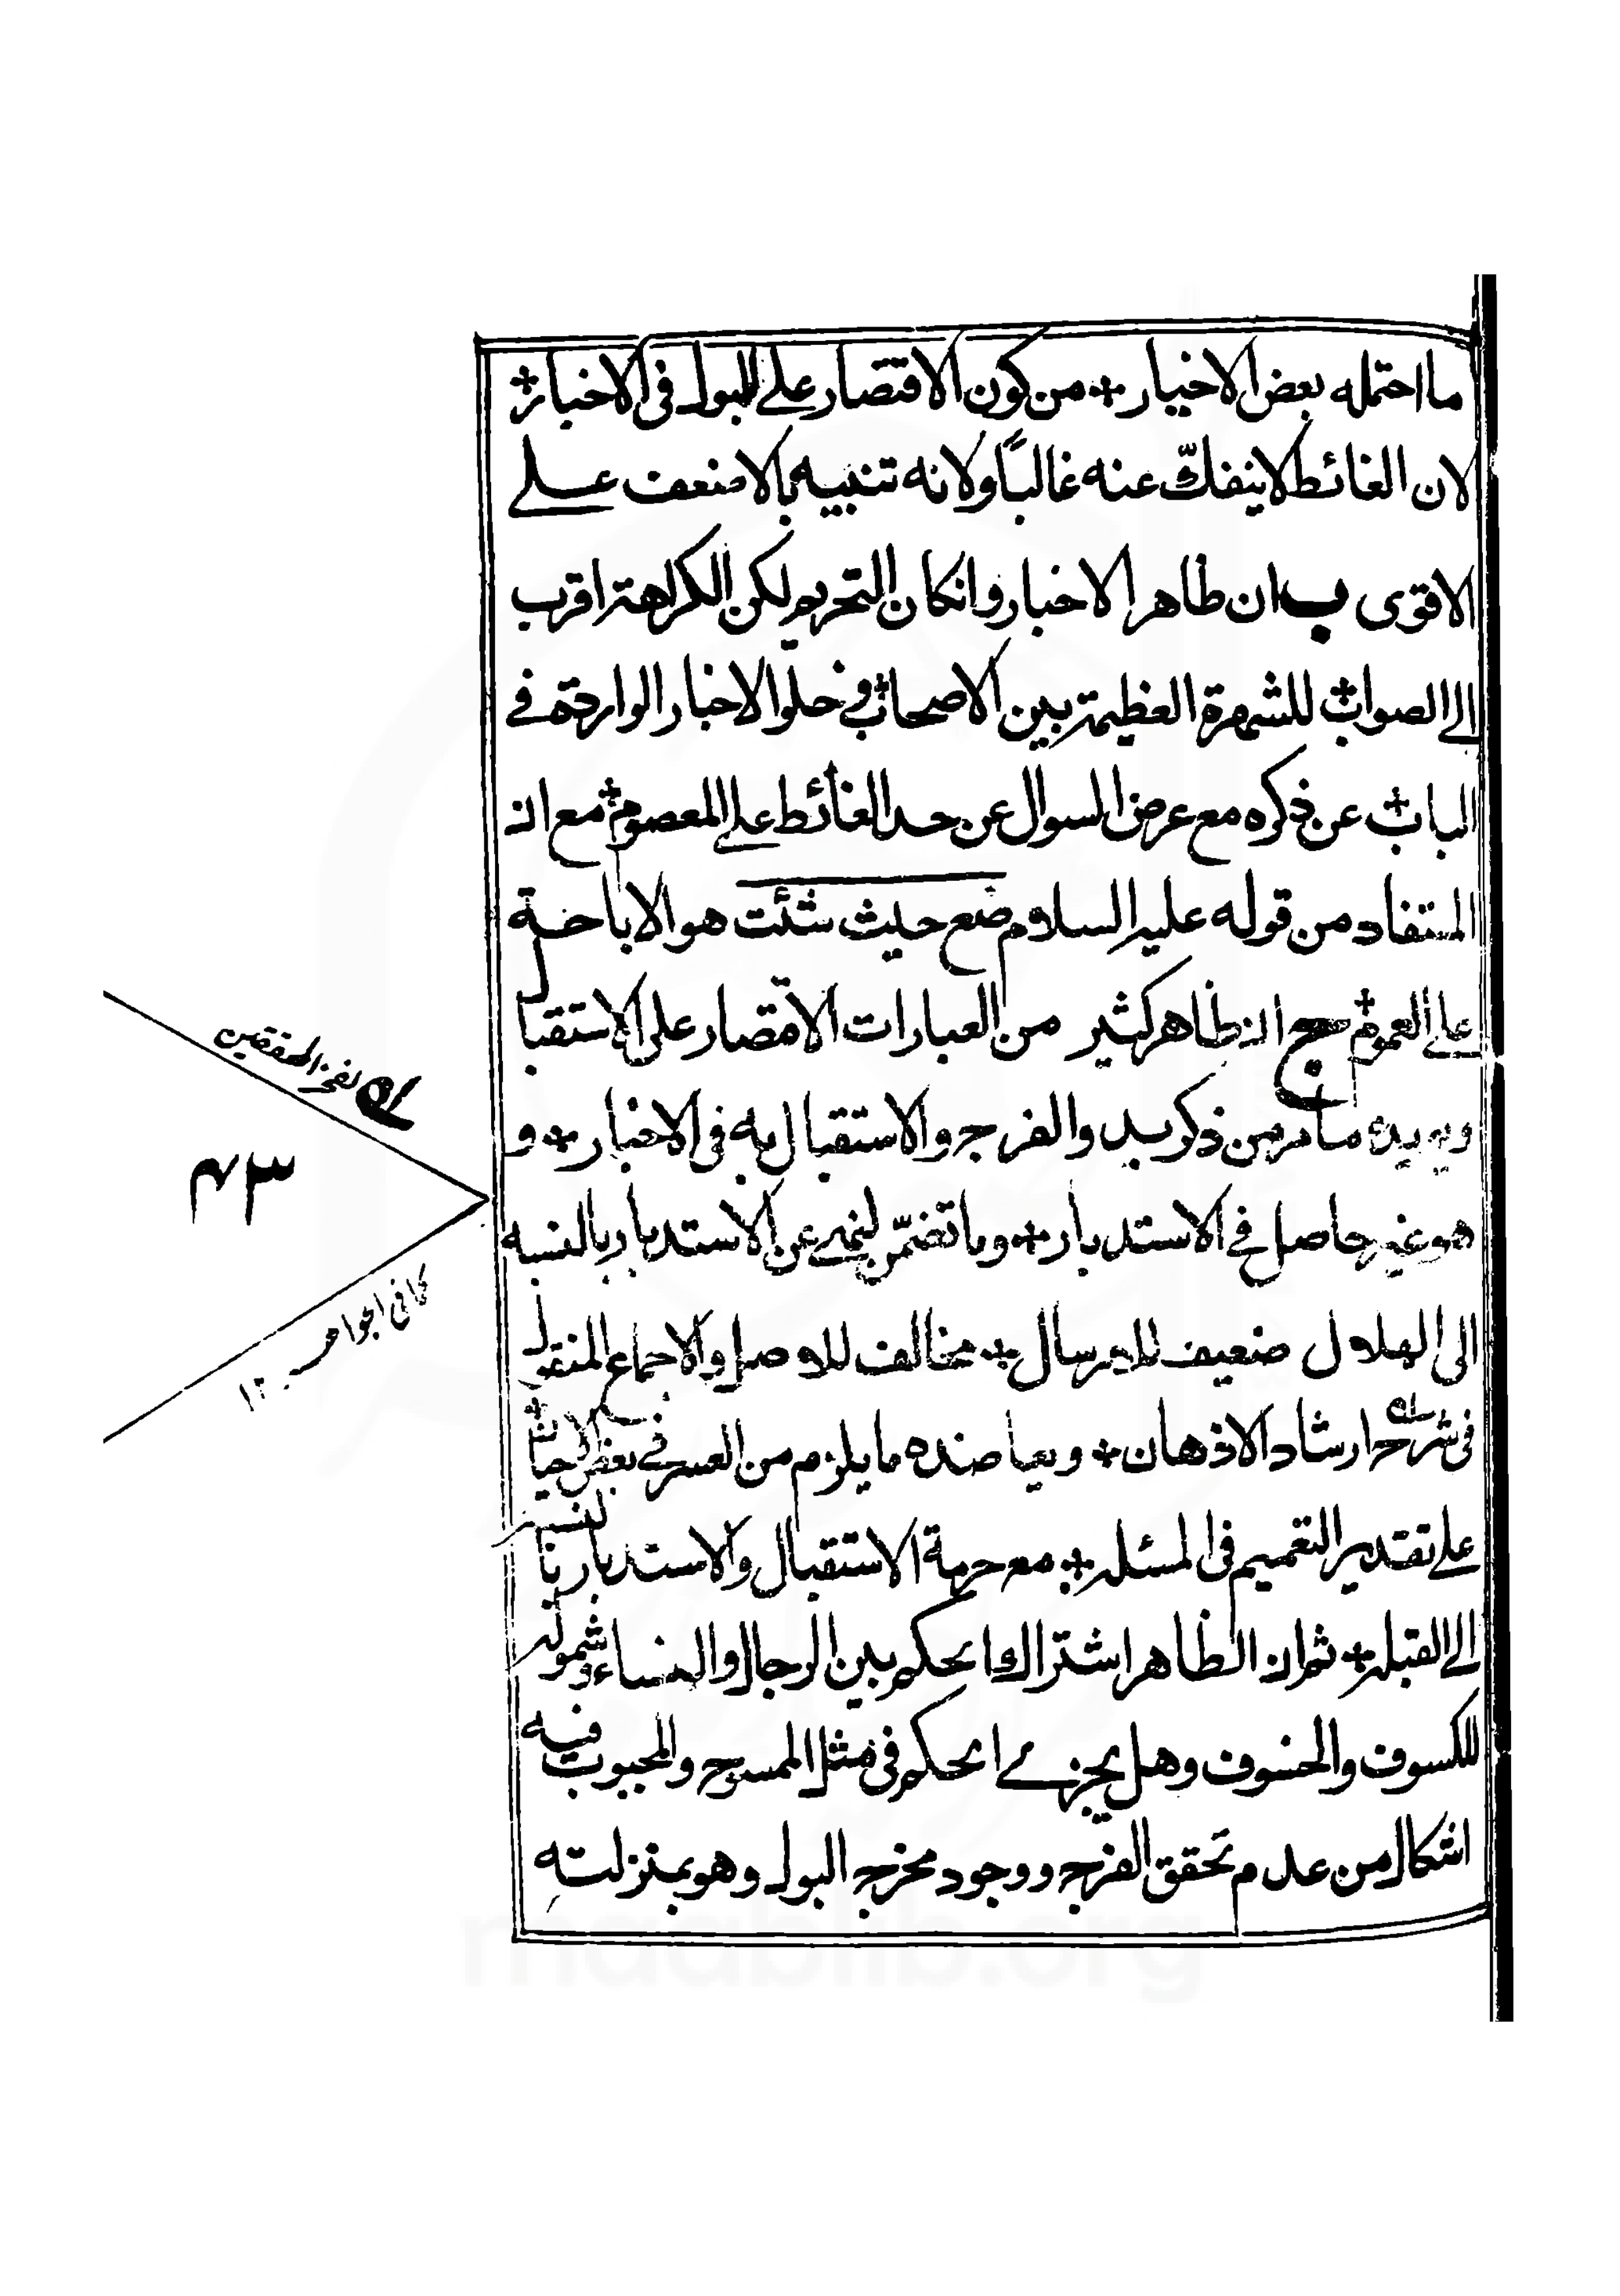 ما احتمله بعض الاخيار ÷ من كون الاقتصار على البول فى الاخبار ÷
لان الغائط لاينفكّ عنه غالباً ولانه تنبيه بالاضعف على
الاقوى ب ان ظاهر الاخبار وانكان التحريم لكن الكراهة اقرب
الى الصواب ÷ للشهرة العظيمة بين الاصحاب ÷ وخلو الاخبار الواردة فى
الباب ÷ عن ذكره مع عرض السوال عن حد الغائط على المعصوم ÷ مع ان
المتفاد من قوله عليه السلام ضع حيث شئت هو الاباحة
على العموم ÷ ج ان ظاهر كثير من العبارات الاقتصار على الاستقبا
ويويده مامر من ذكر البول والفرج والاستقبال به فى الاخبار ÷ و
هو غير حاصل فى الاستدبار ÷ وما تضمّن النهى عن الاستدبار بالنسبه
الى الهلال ضعيف للارسال ÷ مخالف للاصل والاجماع المنقول
فى شرح ارشاد الاذهان ÷ ويعاضده ما يلزم من العسر فى بعض الاحيان ÷
على تقدير التعميم فى المسئلة ÷ مع حرمة الاستقبال والاستدبار بالنسبة
الى القبلة ÷ ثم ان الظاهر اشتراك الحكم بين الرجال والنساء وشموله
للكسوف والخسوف وهل يجزى الحكم فى مثل الممسوح والمجبوب فيه
اشكال من عدم تحقق الفرج ووجود مخرج البول وهو بمنزلته
لفخر المحققين
٤٣
كما فى الجواهر ١٢
maablib.org